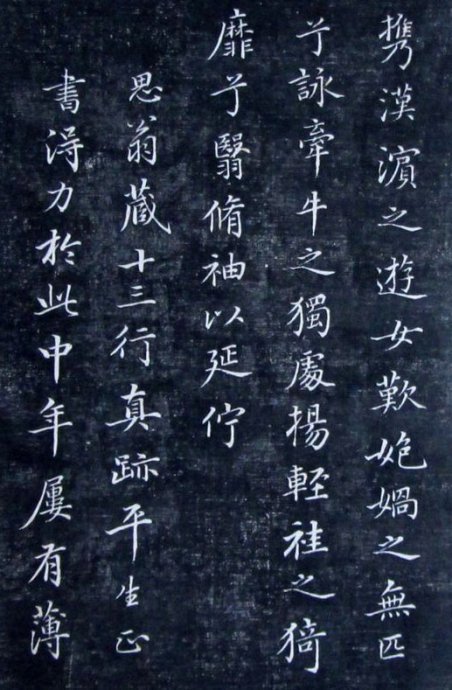 携漢濱之遊女歎匏媧之無匹
兮詠牽牛之獨處揚輕袿之猗
靡兮翳脩袖以延佇
思翁藏十三行真跡平生正
書得力於此中年屢有薄